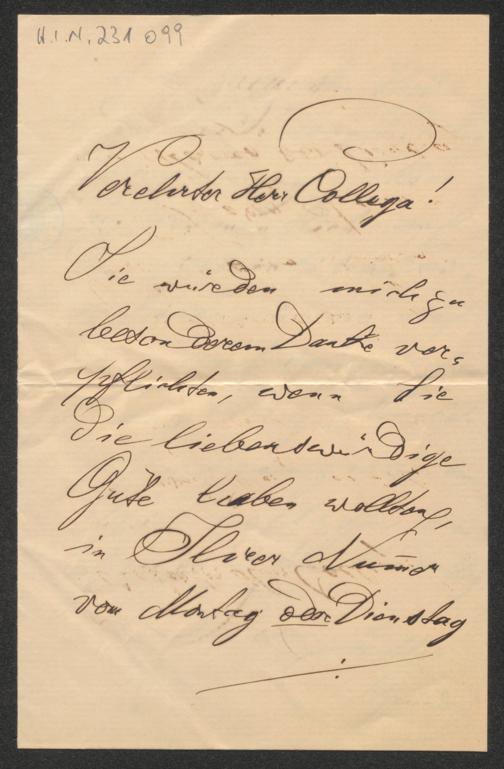 H.I.N. 231 099
Verehrter Herr Collega!
Sie würden mich zu
besonderem Danke ver-
pflichten, wenn Sie
die liebenswürdige
Güte haben wollten,
in Ihrer Num̅er
vom Montag oder Dienstag
: